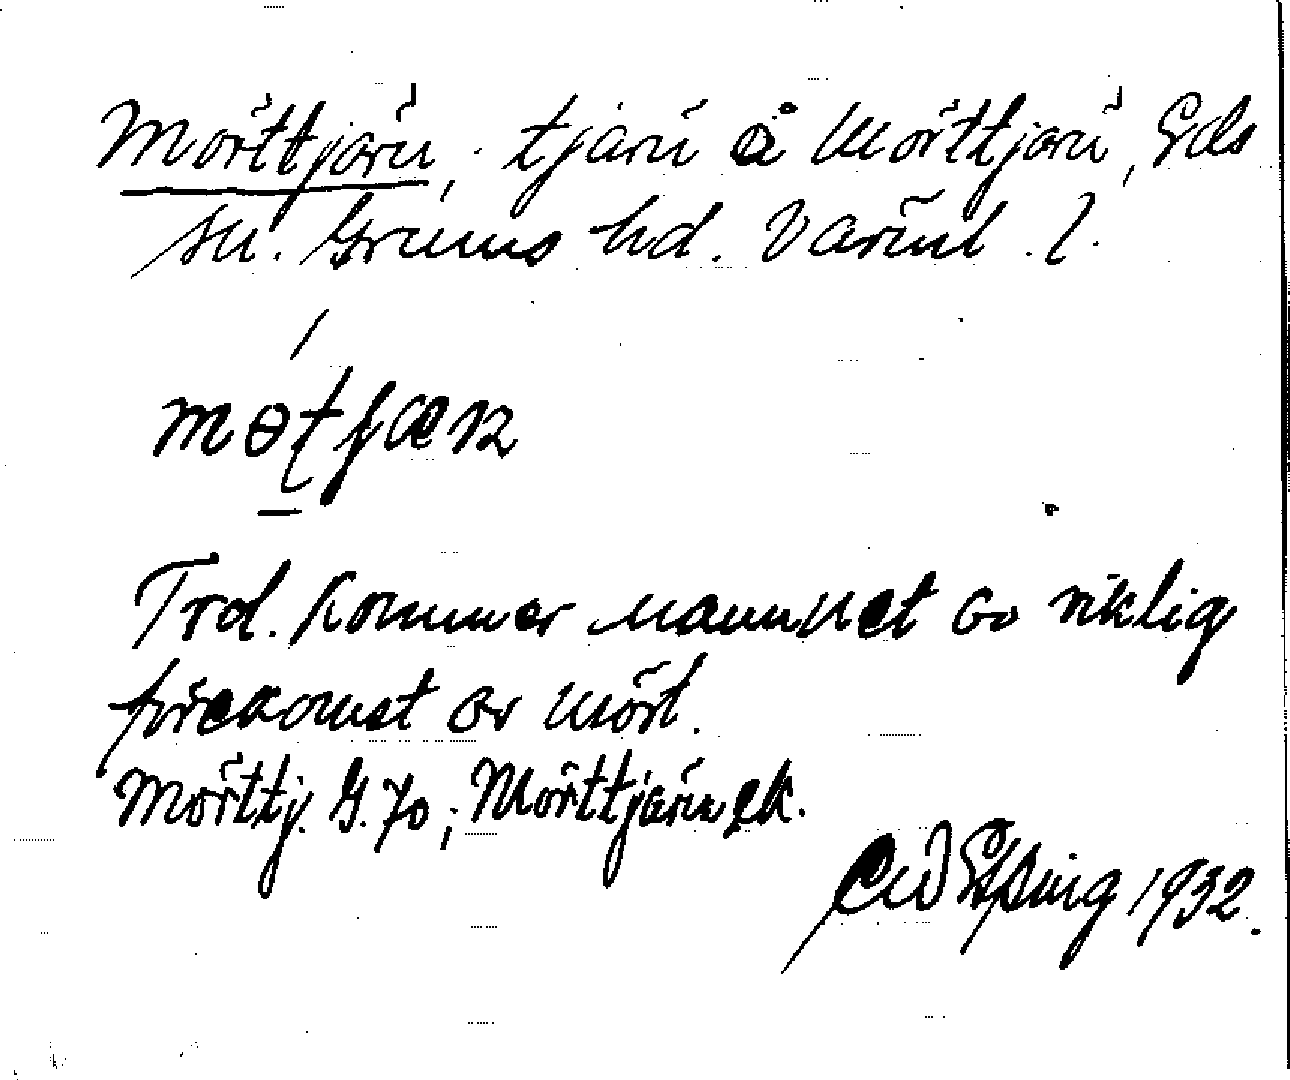 Mörttjärn, tjärn å Mörttjärn, Eds
sn. Grums hd. Värml. l.
Trol. kommer namnet av riklig
förekomst av mört.
Mörttj. G. 70; Mörttjärn ek.
1932.